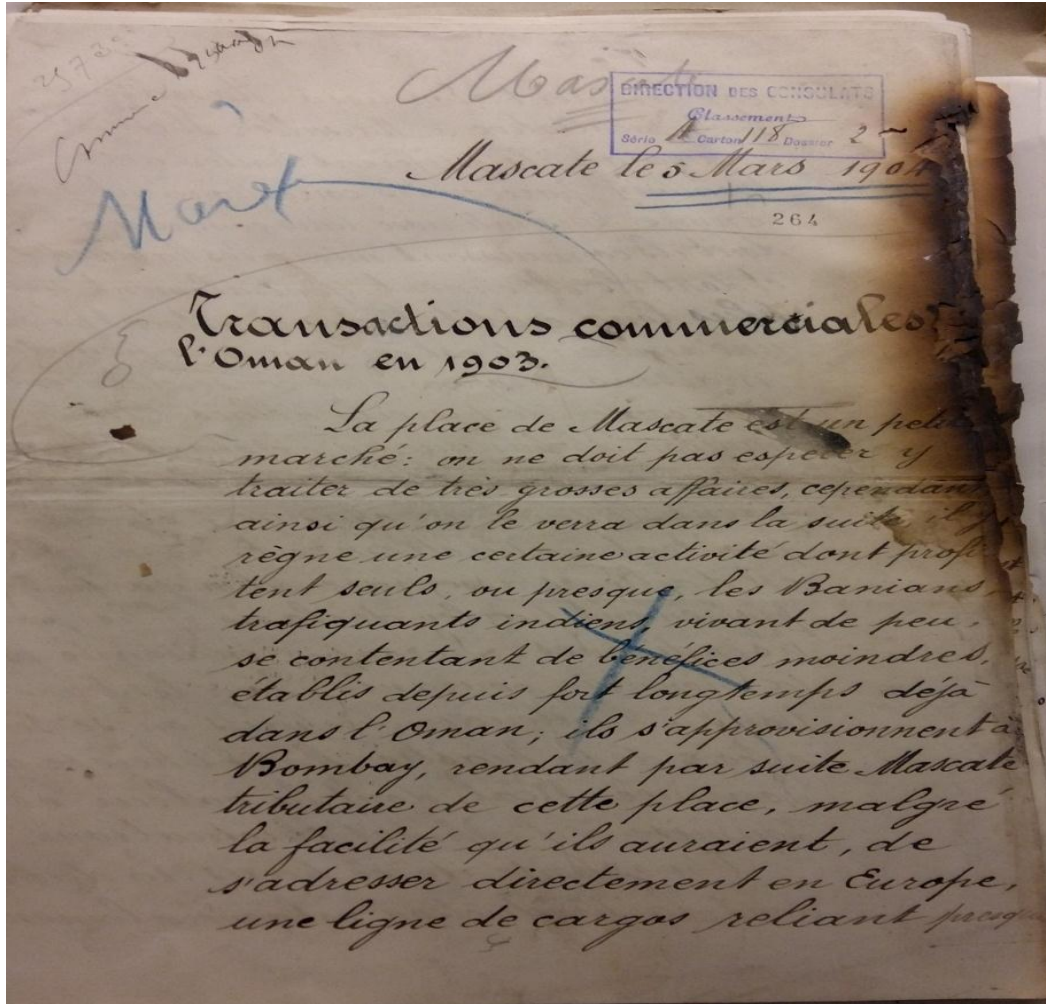 Mascate
DIRECTION DES CONSULATS
Classement
Série A Carton 118 Dossier 2
Mascate le 5 Mars 1904
264
Transactions commerciales
l'Oman en 1903.
La place de Mascate est un petit
marché: on ne doit pas espérer y
traiter de très grosses affaires, cependant
ainsi qu'on le verra dans la suite il y
règne une certaine activité dont profi-
tent seuls, ou presque, les Banians,
trafiquants indiens, vivant de peu,
se contentant de bénéfices moindres,
établis depuis fort longtemps déjà
dans l'Oman; ils s'approvisionnent à
Bombay, rendant par suite Mascate
tributaire de cette place, malgré
la facilité qu'ils auraient, de
s'adresser directement en Europe,
une ligne de cargos reliant